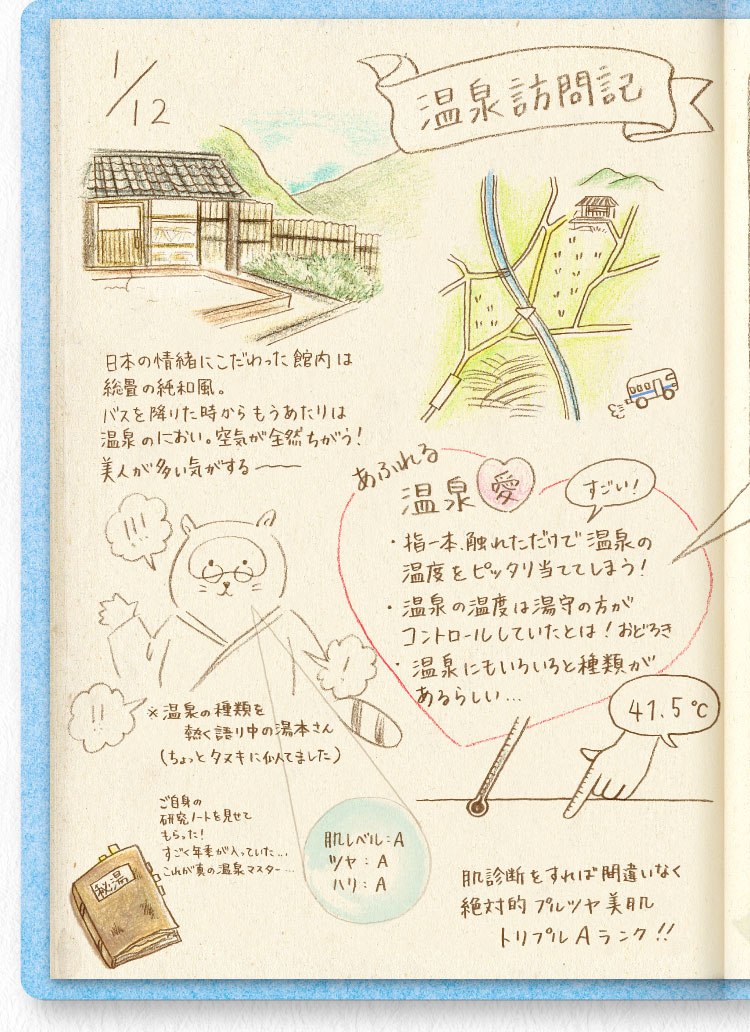 1/12
温泉訪問記
日本の情緒にこだわった館内は
総畳の純和風。
バスを降りた時からもうあたりは
温泉のにおい。空気が全然ちがう！
美人が多い気がする〜
あふれる
温泉愛
すごい！
・指一本、触れただけで温泉の
温度をピッタリ当ててしまう！
・温泉の温度は湯守の方が
コントロールしていたとは！おどろき
・温泉にもいろいろと種類が
あるらしい…
41.5℃
!!!
!
!!
※温泉の種類を
熱く語り中の湯本さん
(ちょっとタヌキに似てました)
ご自身の
研究ノートを見せて
もらった！
すごく年季が入っていた…
これが真の温泉マスター…
秘湯
肌レベル：A
ツヤ：A
ハリ：A
肌診断をすれば間違いなく
絶対的プルツヤ美肌
トリプルAランク!!